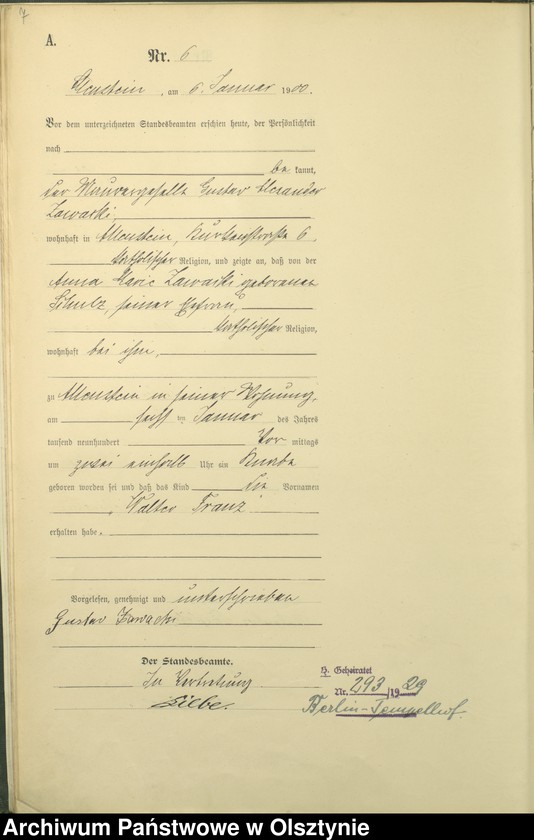 7
A.
Nr. 6
Allenstein, am 6. Januar 1900.
Vor dem unterzeichneten Standesbeamten erschien heute, der Persönlichkeit
nach
bekannt,
der Maurergeselle Gustav Alexander
Zawacki,
wohnhaft in Allenstein, Kurkenstraße 6,
katholischer Religion, und zeigte an, daß von der
Anna Marie Zawacki geborenen
Schulz, seiner Ehefrau,
katholischer Religion,
wohnhaft bei ihm,
zu Allenstein in seiner Wohnung,
am sechsten Januar des Jahres
tausend neunhundert Vormittags
um zwei einhalb Uhr ein Knabe
geboren worden sei und daß das Kind die Vornamen
Walter Franz
erhalten habe.
Vorgelesen, genehmigt und unterschrieben
Gustav Zawacki
Der Standesbeamte.
In Vertretung
H. Geheiratet
Nr. 293/1929
Berlin-Tempelhof.
Archiwum Państwowe w Olsztynie